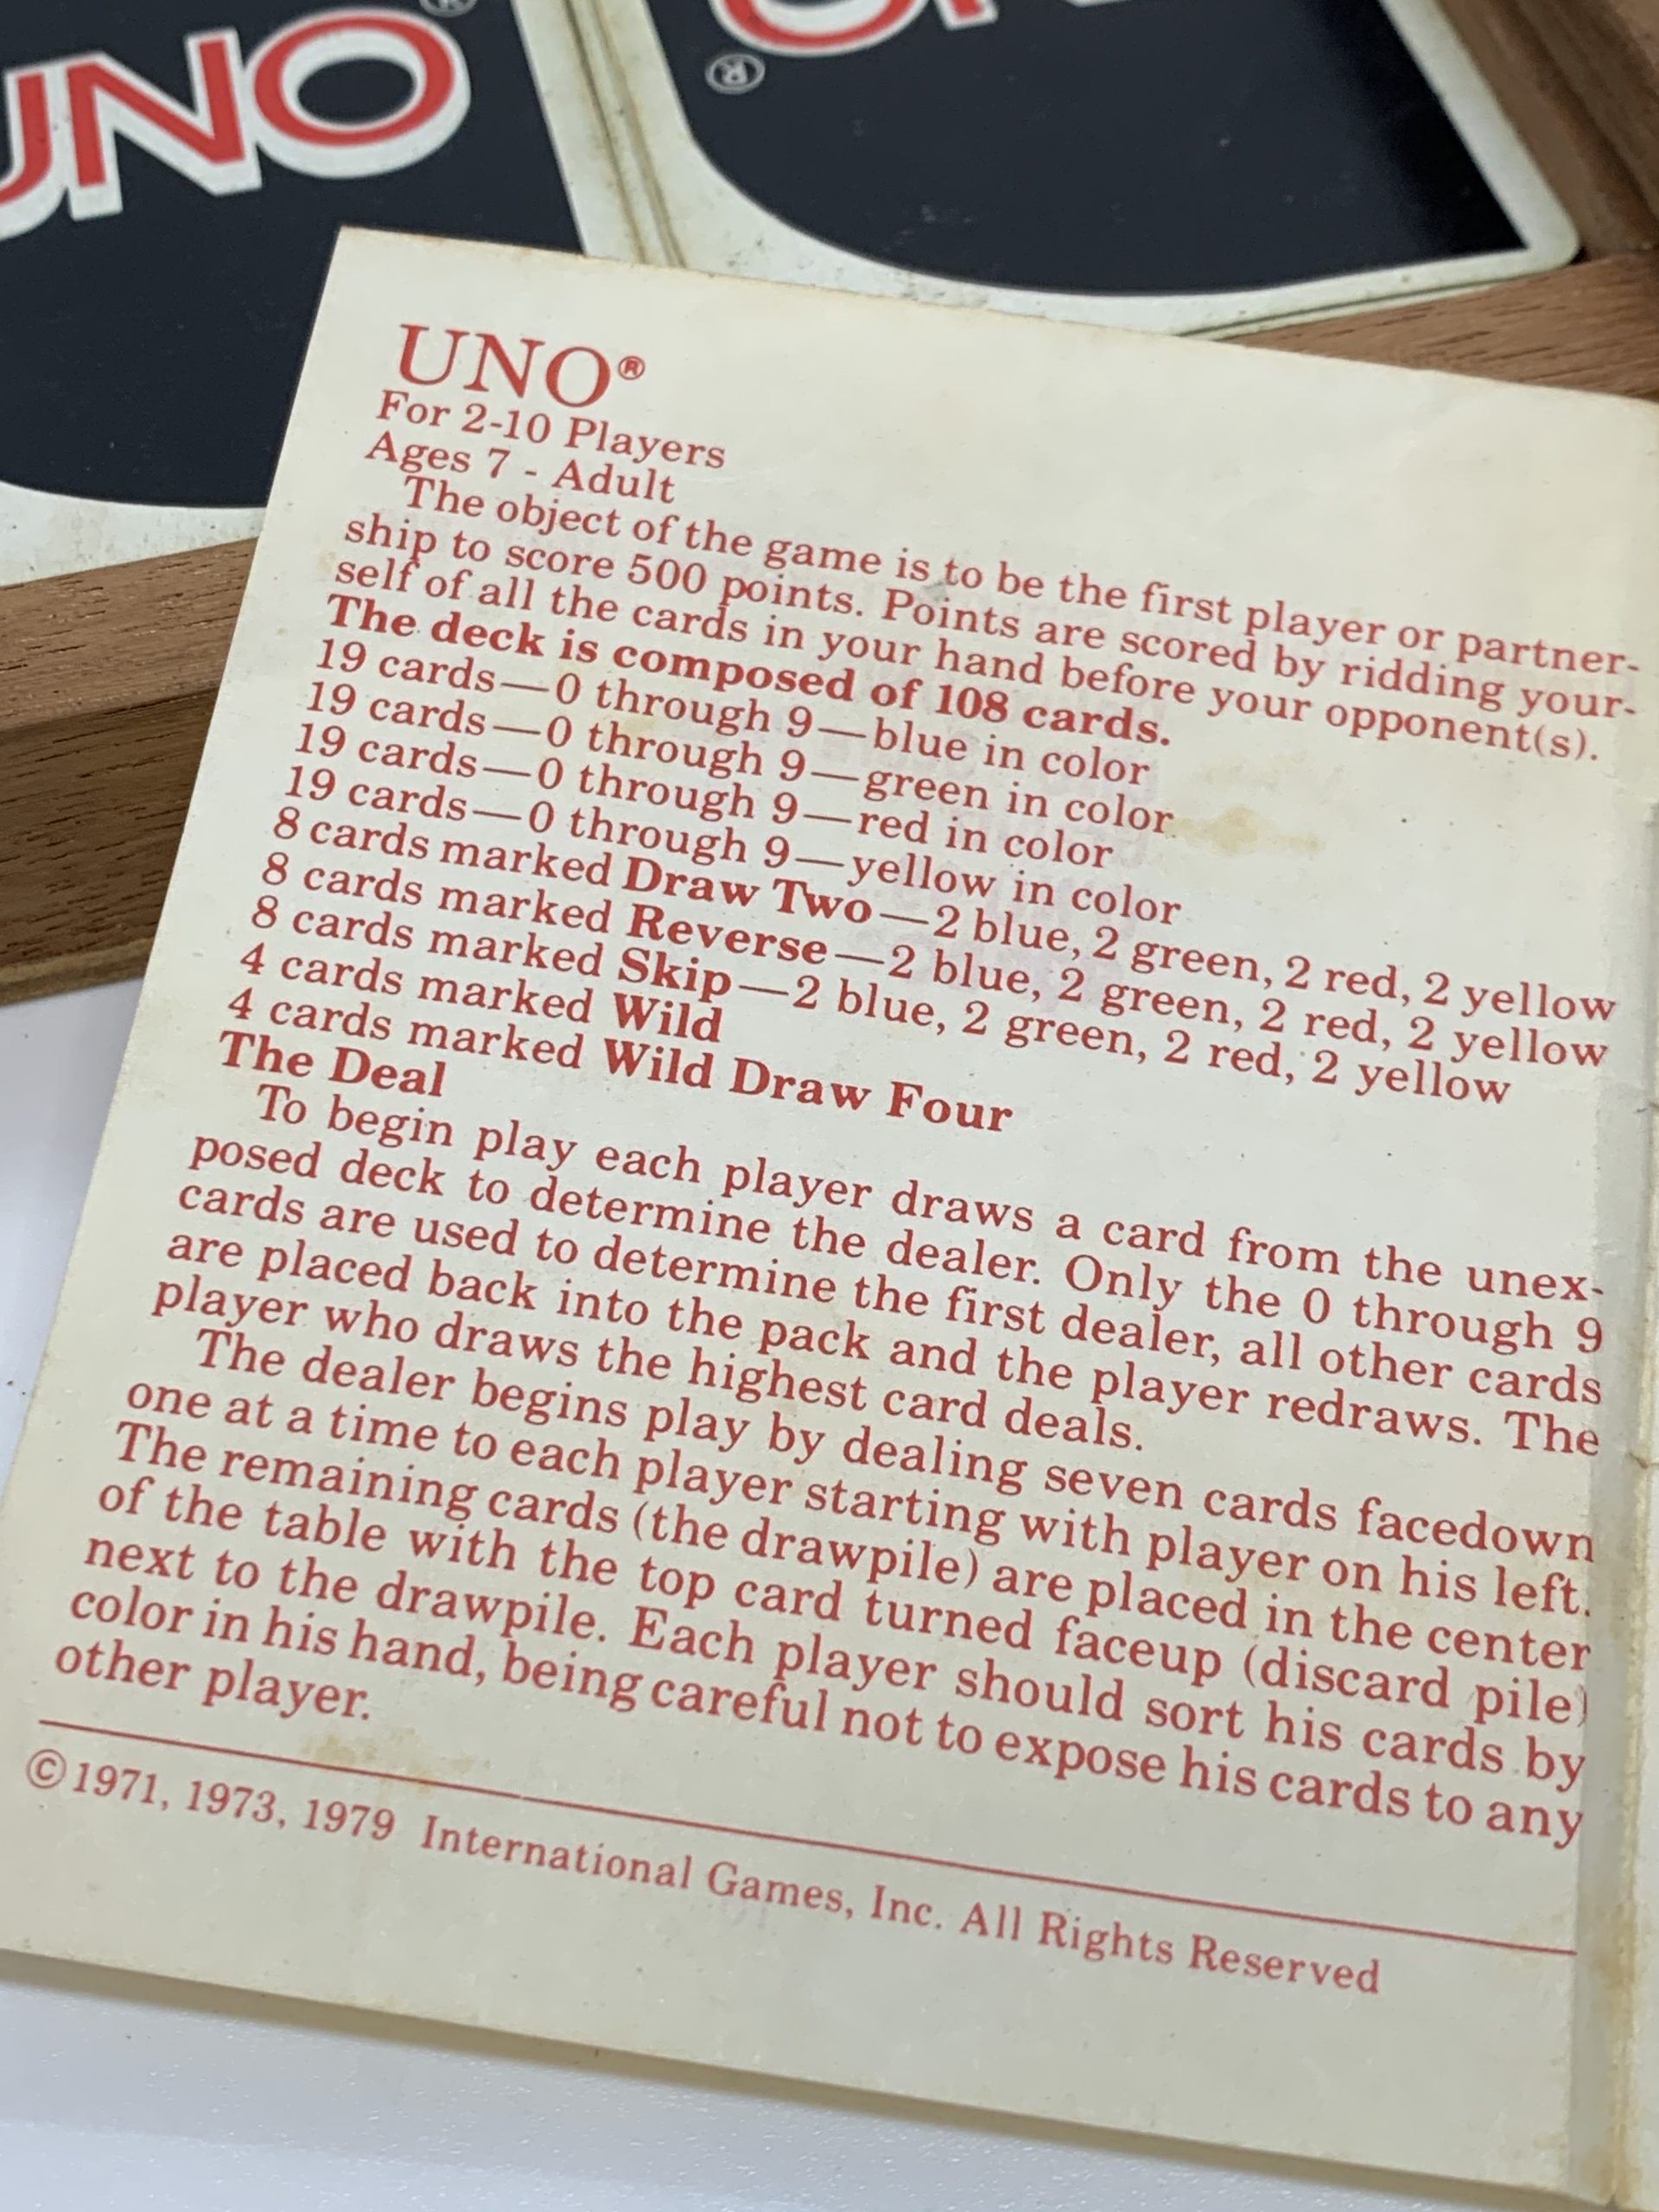 UNO
®
UNO®
For 2-10 Players
Ages 7 - Adult
The object of the game is to be the first player or partner-
ship to score 500 points. Points are scored by ridding your-
self of all the cards in your hand before your opponent(s).
The deck is composed of 108 cards.
19 cards—0 through 9—blue in color
19 cards—0 through 9—green in color
19 cards—0 through 9—red in color
19 cards—0 through 9—yellow in color
8 cards marked Draw Two—2 blue, 2 green, 2 red, 2 yellow
8 cards marked Reverse—2 blue, 2 green, 2 red, 2 yellow
8 cards marked Skip—2 blue, 2 green, 2 red, 2 yellow
4 cards marked Wild
4 cards marked Wild Draw Four
The Deal
To begin play each player draws a card from the unex-
posed deck to determine the dealer. Only the 0 through 9
cards are used to determine the first dealer, all other cards
are placed back into the pack and the player redraws. The
player who draws the highest card deals.
The dealer begins play by dealing seven cards facedown
one at a time to each player starting with player on his left.
The remaining cards (the drawpile) are placed in the center
of the table with the top card turned faceup (discard pile)
next to the drawpile. Each player should sort his cards by
color in his hand, being careful not to expose his cards to any
other player.
©1971, 1973, 1979 International Games, Inc. All Rights Reserved